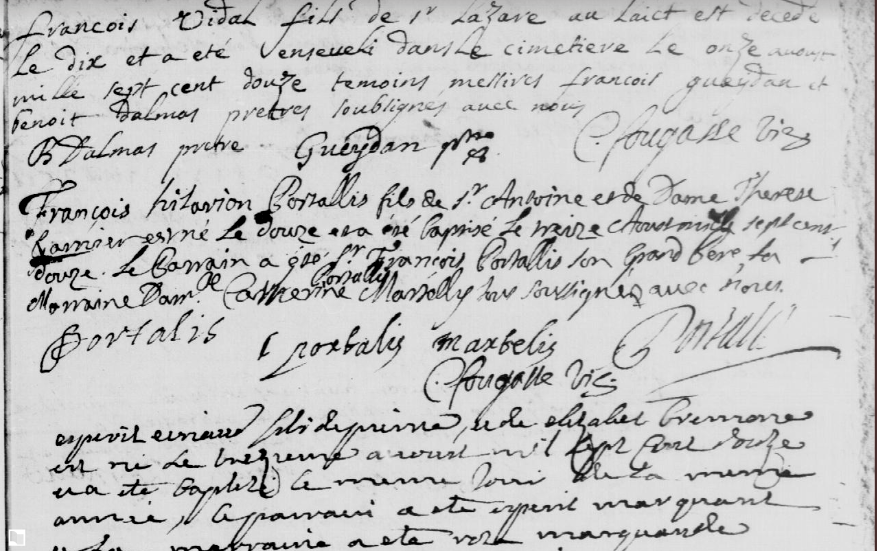 françois Vidal fils de sr Lazare au laict est decede
le dix et a eté enseveli dans le cimetiere le onze aoust
mille sept cent douze temoins messires françois gueydan et
benoit dalmas pretres soubsignes avec nous
B Dalmas pretre Gueydan ptre C. fougasse Vic
François hilarion Portallis fils de Sr Antoine et de Dame Therese
est né le douze et a été baptisé le treize Aoust mille sept cent
douze. le Parrain a été Sr François Portallis son Grand Pere la
Marraine Damlle Catherine Portallis Martelly tous soussignes avec nous.
Portalis portalis martelis Portalis
C. fougasse Vic
esperit fils de et de elizabet
est né le treizieme avoust mil sept cent douze
et a ete baptize le meme jour de la meme
année, le parrain a ete esperit marquant
et la marraine a ete roze marquande